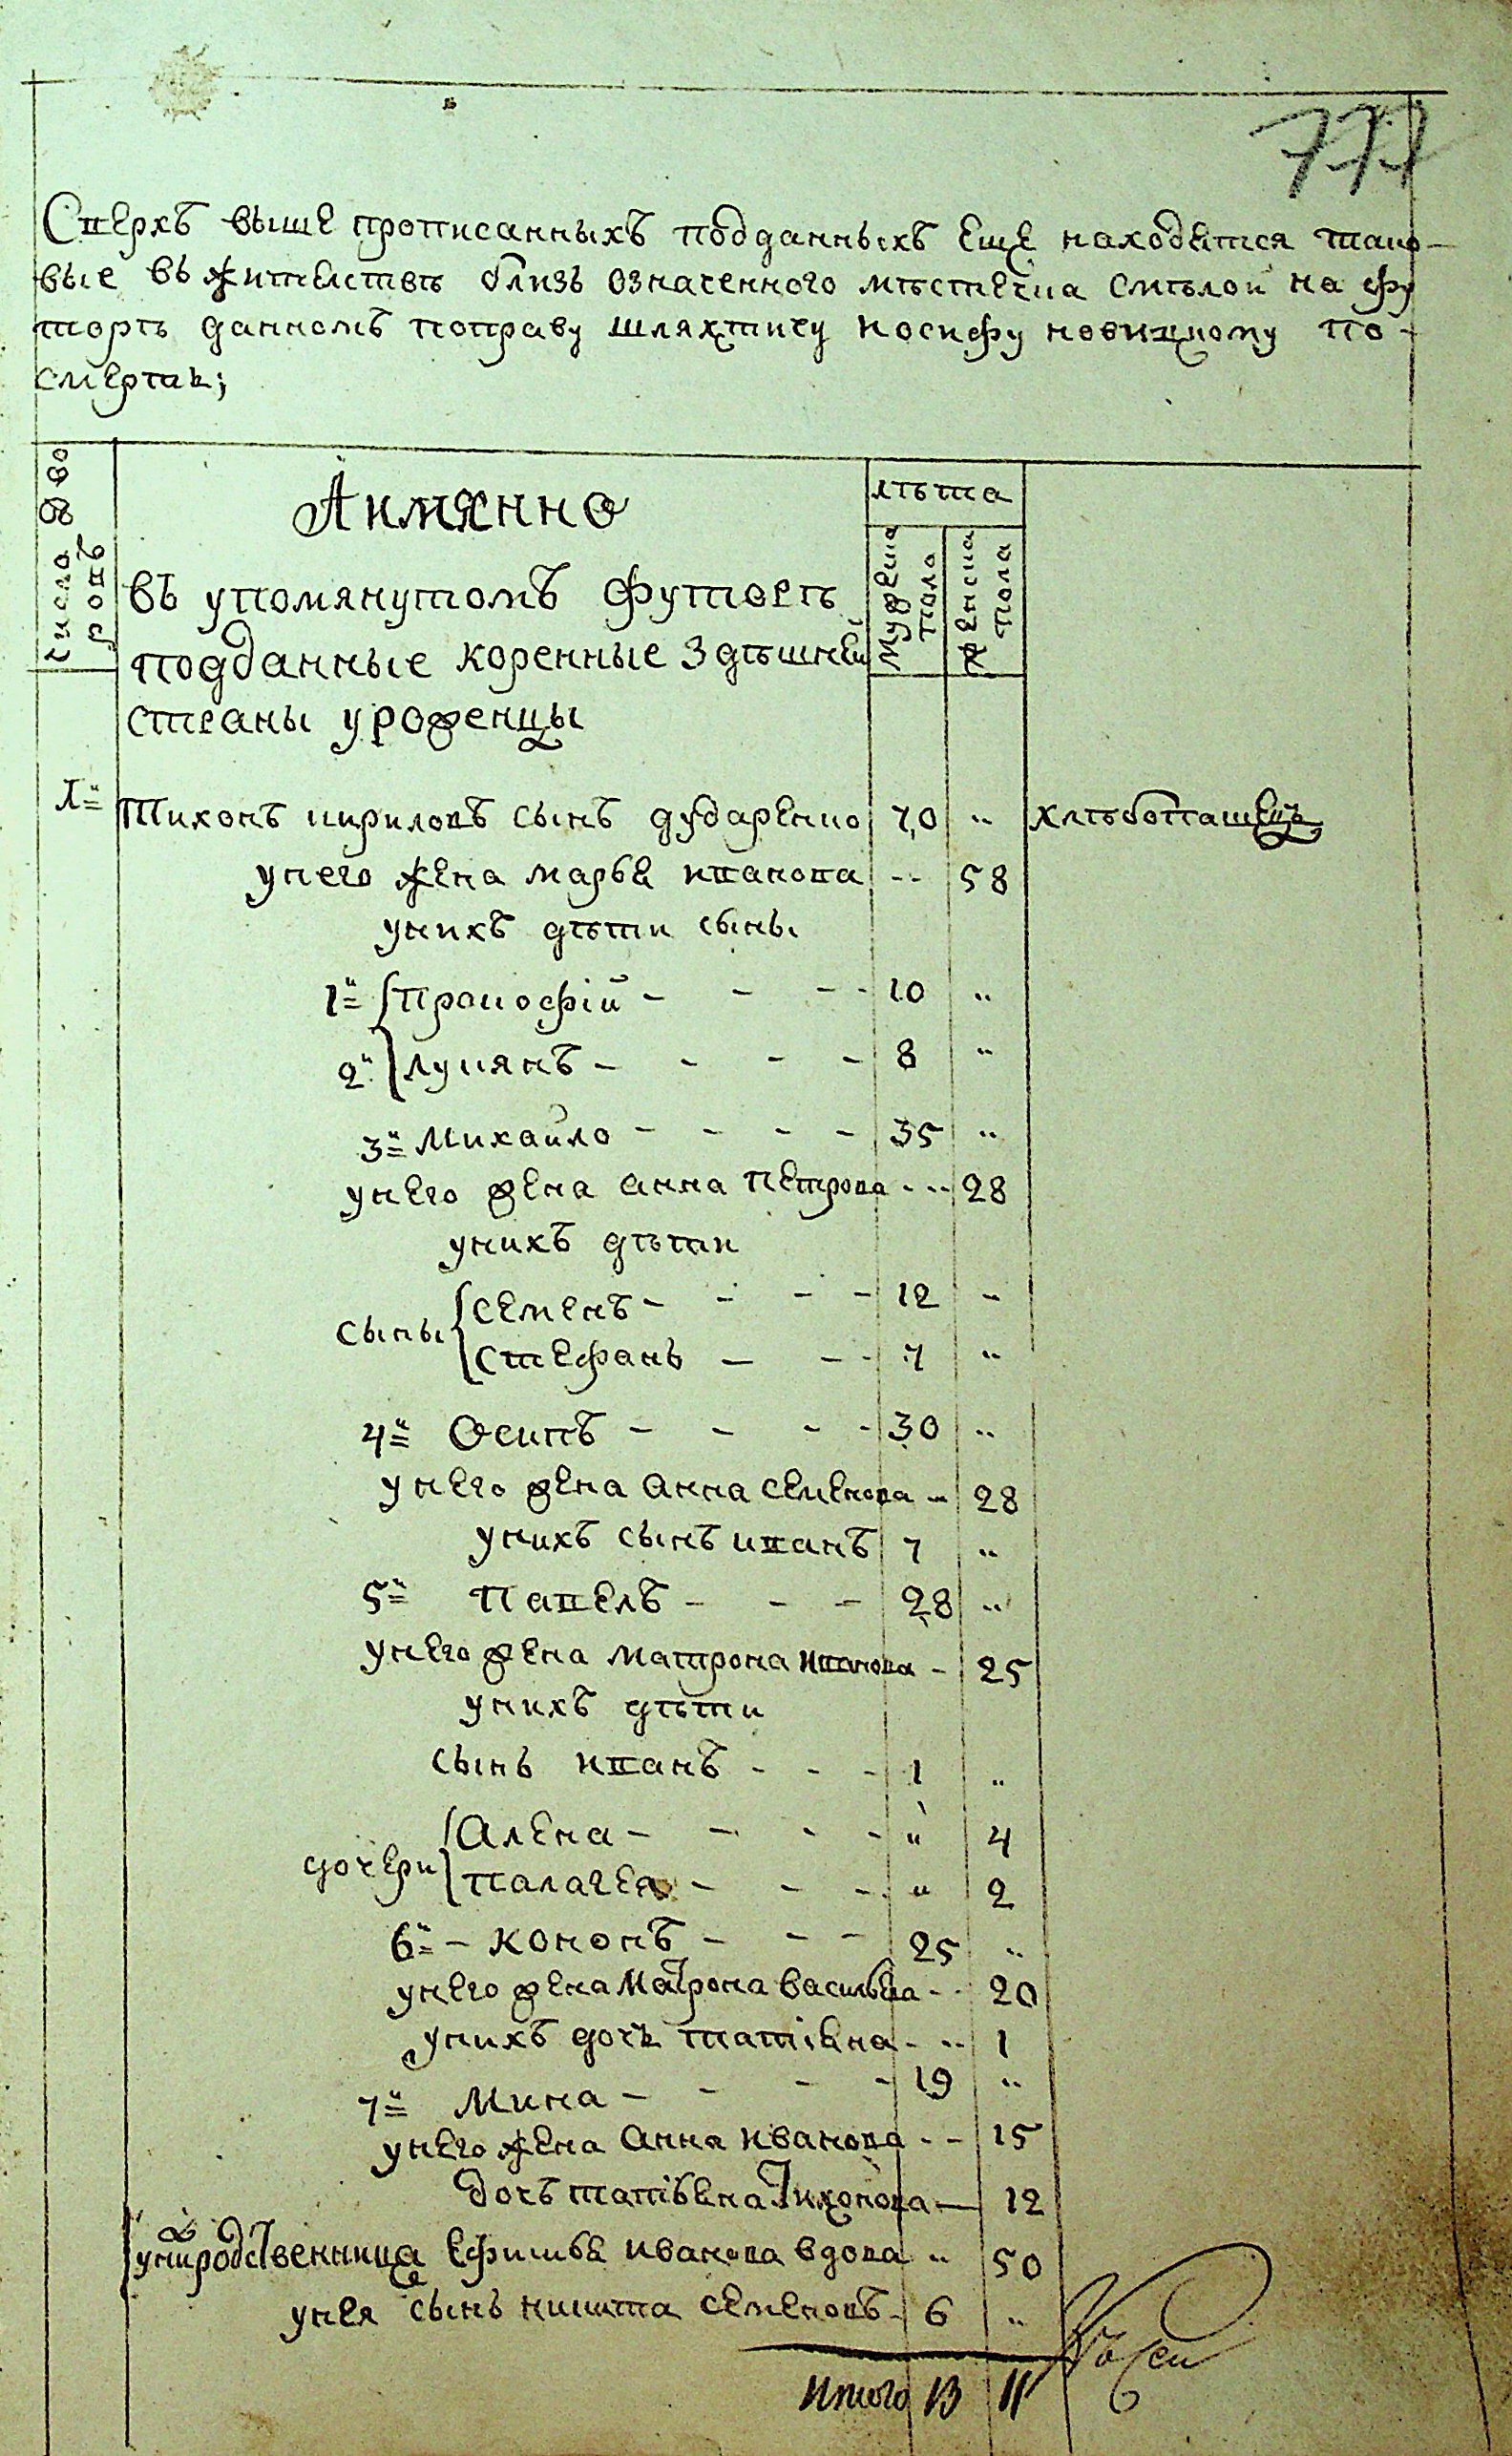 777
Сверхъ выше прописанныхъ подданныхъ еще находятся тако-
вые въ жителствѣ близь означенного мѣстечка Смѣлой на фу
торѣ данномъ поправу шляхтичу Иосифу Новицкому по-
смерть;
число дво
ровъ
Аимянно
лѣта
мужеска
пола
женска
пола
въ упомянутомъ футорѣ
подданные коренные здѣшней
страны уроженцы
1й Тихонъ Кириловъ сынъ Дударенко 70 " хлѣбопашецъ
унего жена Марья Иванова " 58
унихъ дѣти сыны
1й Прокофій - - - - 10 "
2й Лукянъ - - - - 8 "
3й Михайло - - - - 35 "
унего жена Анна Петрова - " 28
унихъ дѣти
Семенъ - - - - 12 "
сыны
Стефанъ - - - 7 "
4й Осипъ - - - - 30 "
унего жена Анна Семенова " 28
унихъ сынъ Иванъ 7 "
5й Павелъ - - - 28 "
унего жена Матрона Иванова - 25
унихъ дѣти
сынъ Иванъ - - - 1 "
Алена - - - - " 4
дочери
Палагея - - - " 2
6й - Кононъ - - - 25 "
унего жена Матрона Васильева - " 20
унихъ дочь Татіяна - " 1
7й Мина - - - - 19 "
унего жена Анна Иванова - - 15
дочь Татіяна Тихонова — 12
унихъ родственница Ефимья Иванова вдова " 50
унея сынъ Никита Семеновъ - 6 "
Итого 13 11